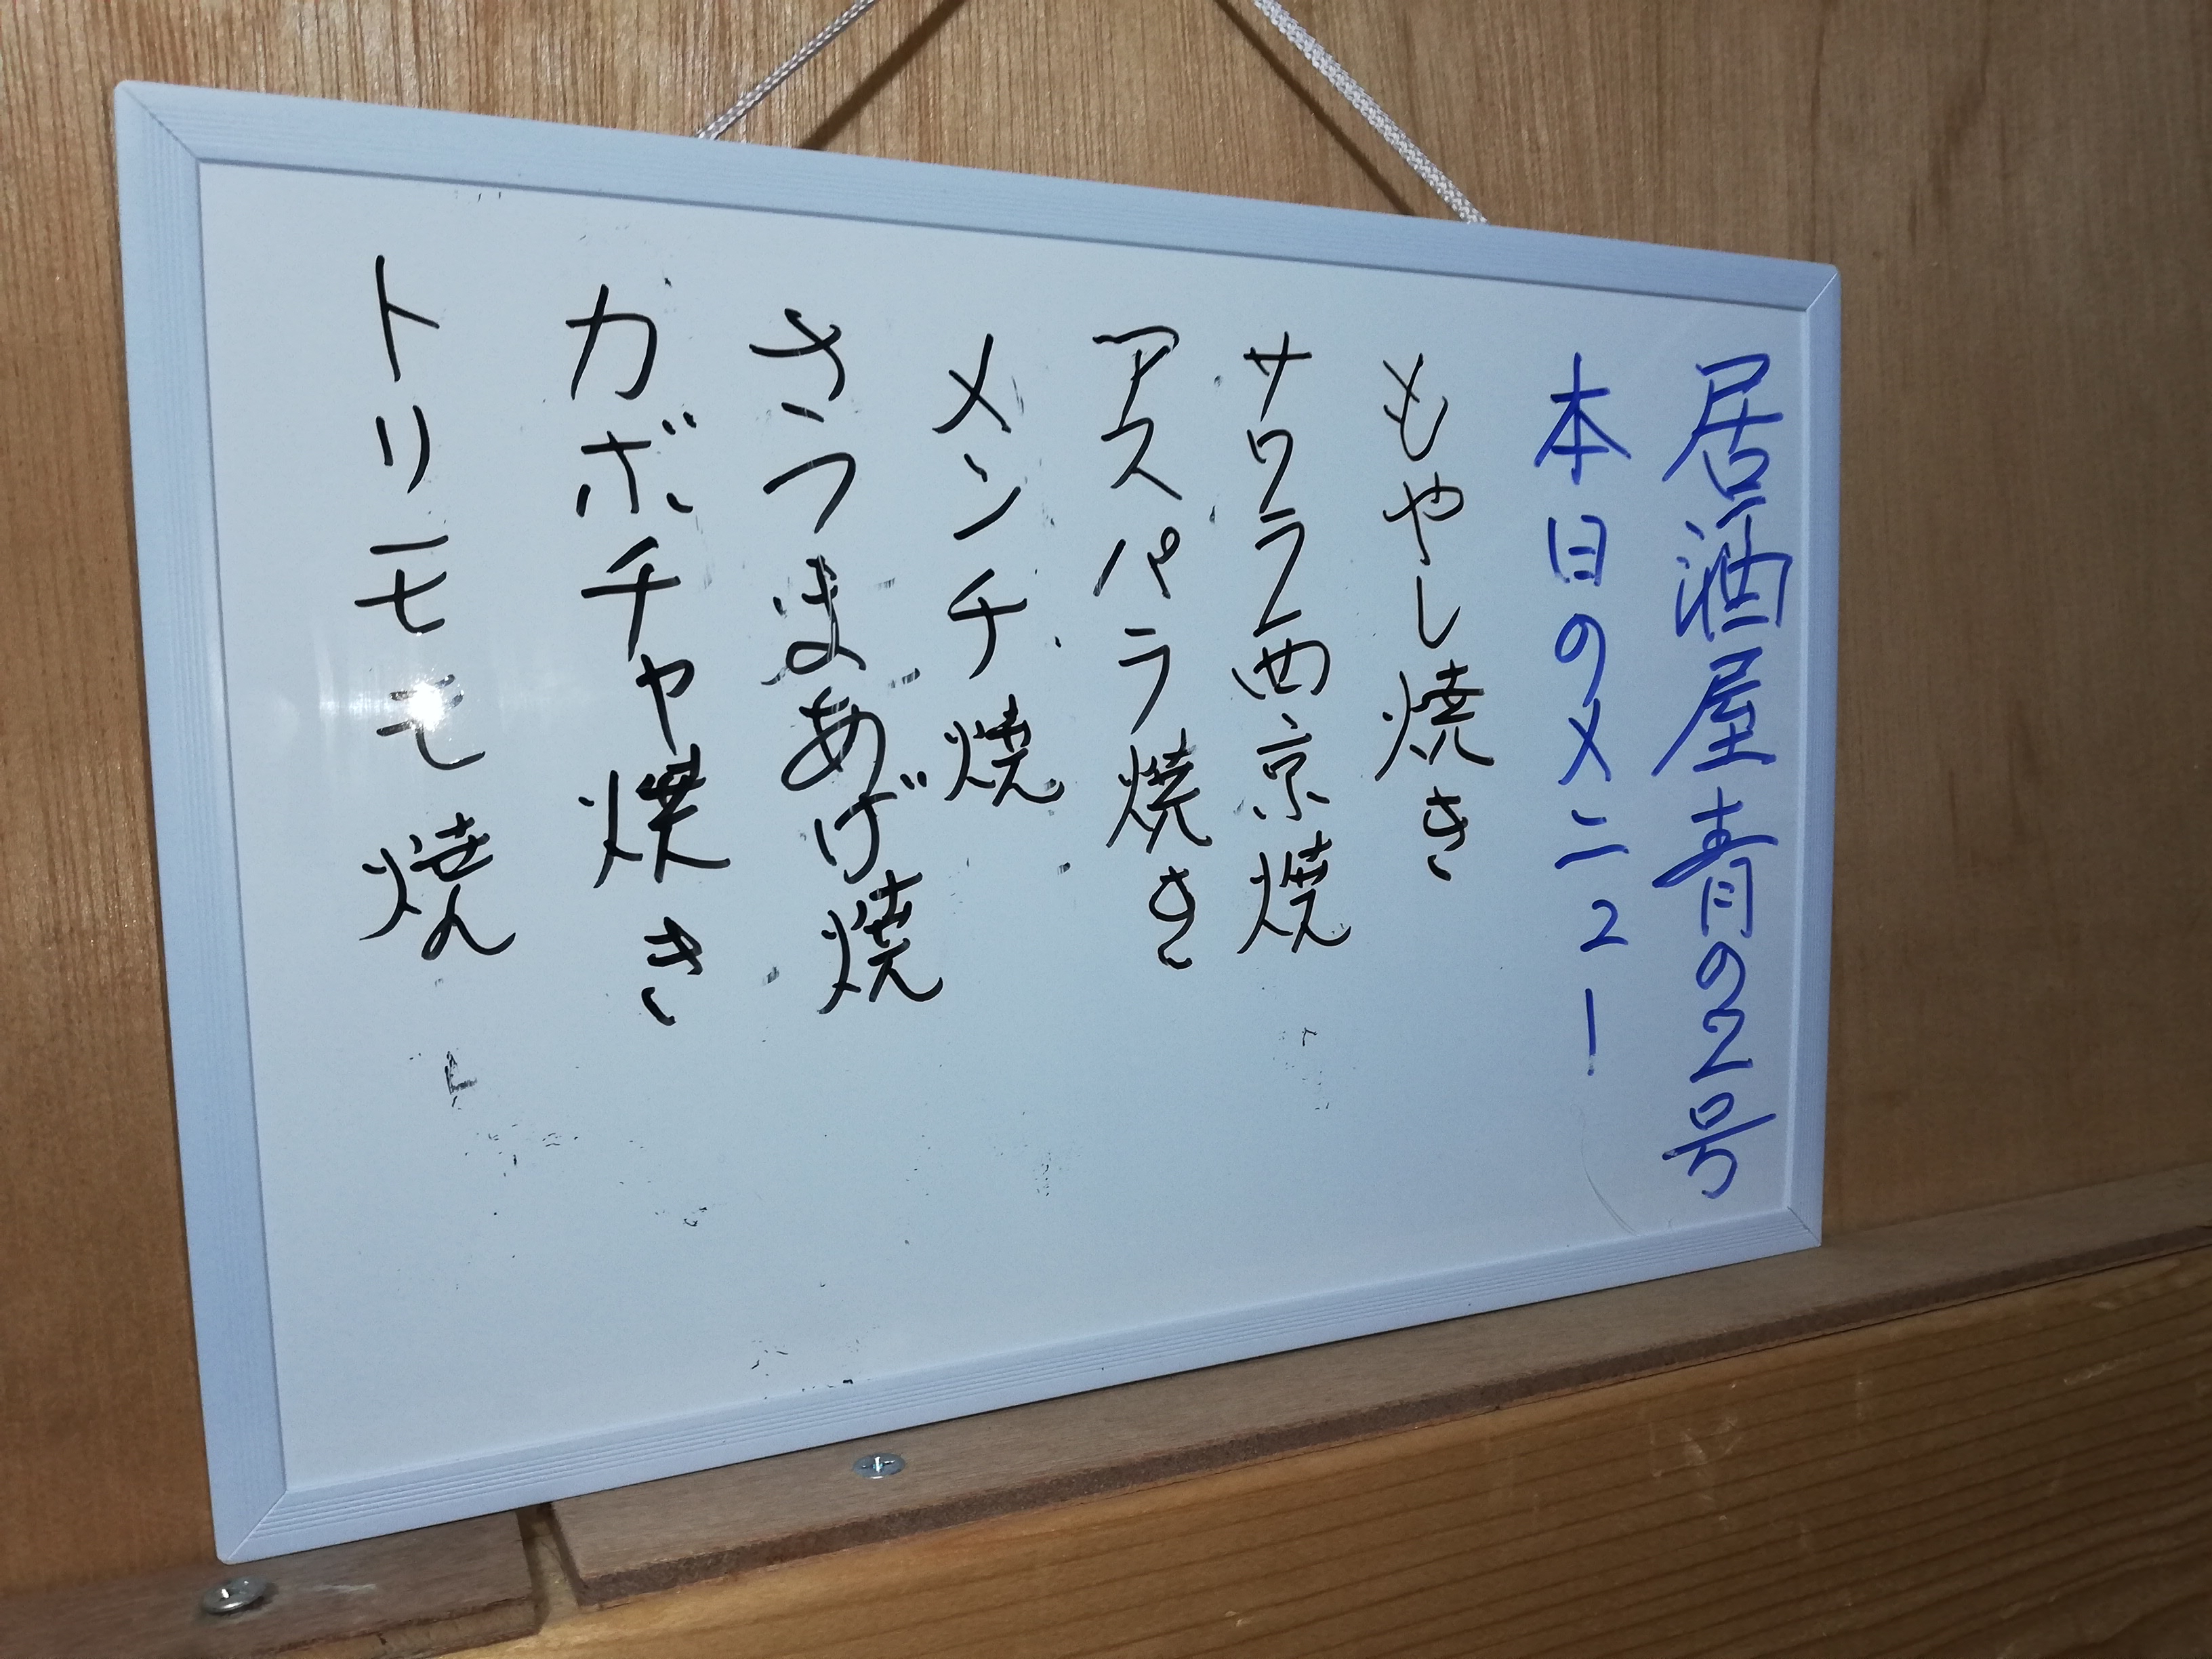 居酒屋青の2号
本日のメニュー
もやし焼き
サワラ西京焼
アスパラ焼き
メンチ焼
さつまあげ焼
カボチャ焼き
トリモモ焼